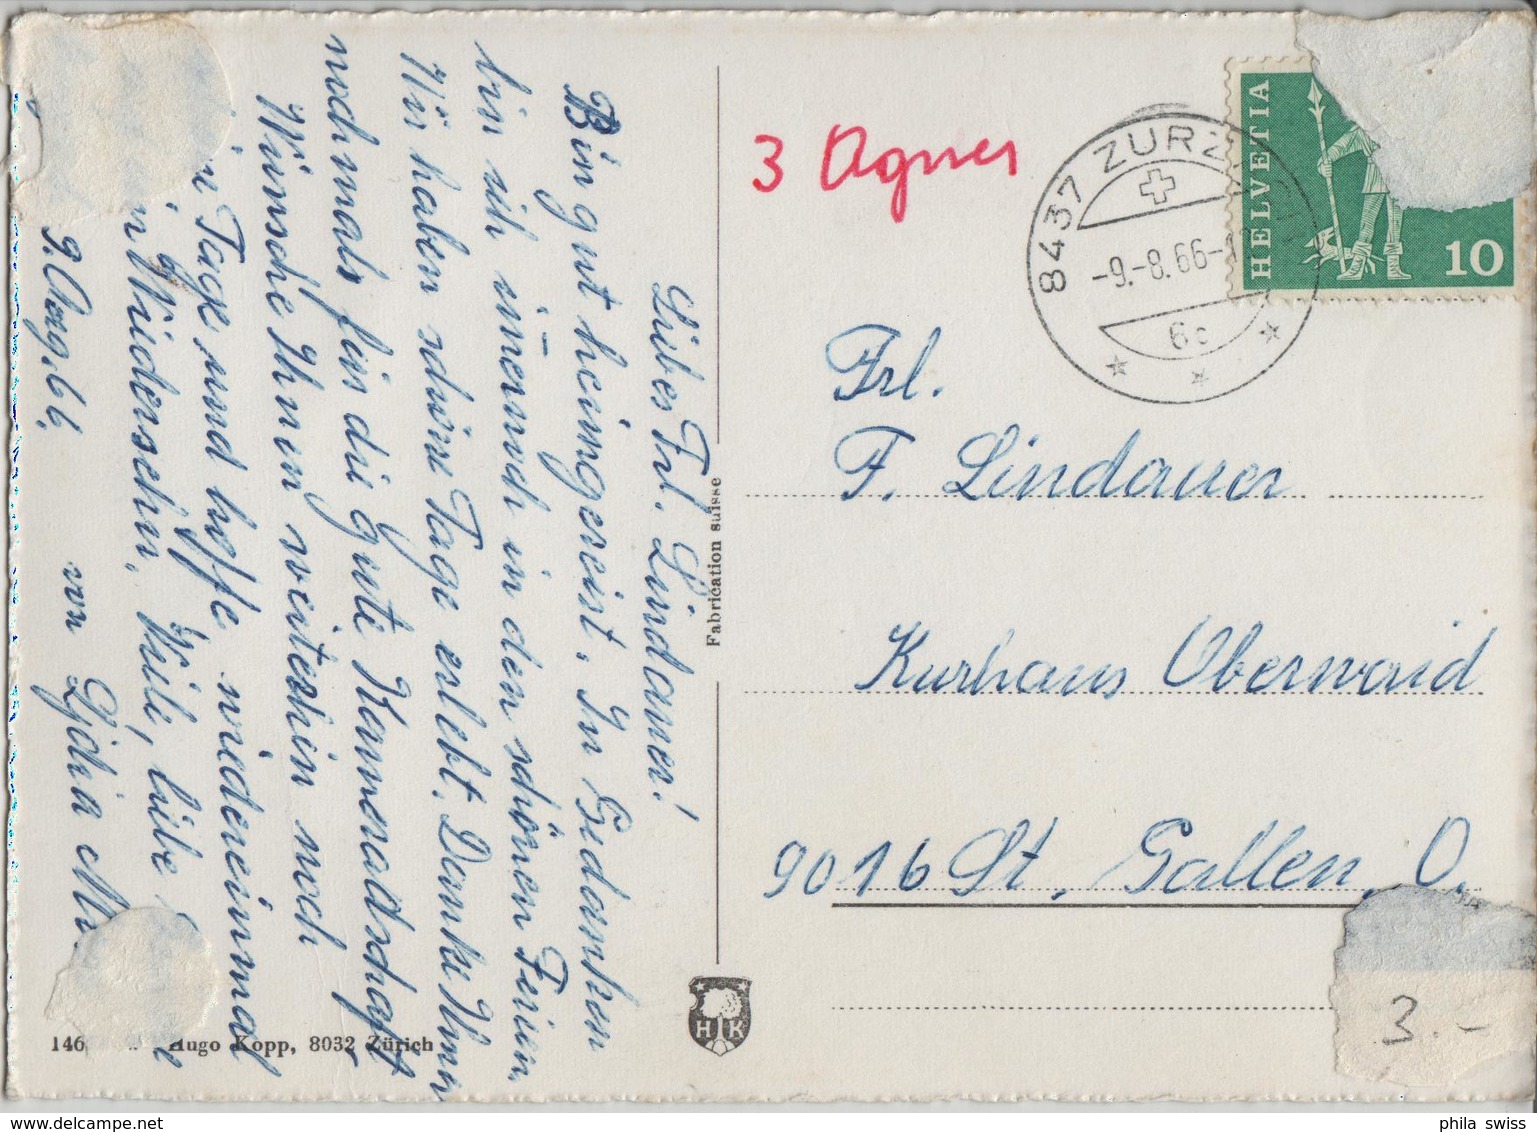 Liebes Frl. Lindauer!
Bin gut heimgereist. In Gedanken
bin ich im̅ernoch in den schönen Ferien.
Wir haben schöne Tage erlebt. Danke Ihnen
nochmals für die gute Kameradschaft
Wünsche Ihnen weiterhin noch
Tage und hoffe wiedereinmal
Wiedersehn. Viele, liebe
9. Aug. 66. von Lydia
146 Hugo Kopp, 8032 Zürich
Fabrication suisse
HK
3 Agnes
8437 ZURZ
-9.-8.66-1
6c
HELVETIA
10
Frl.
F. Lindauer
Kurhaus Oberwaid
9016 St. Gallen, O.
3.-
phila swiss